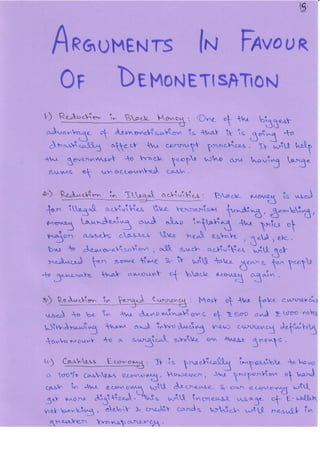 5
ARGUMENTS IN FAVOUR
OF DEMONETISATION
1) Reduction in Black Money : One of the biggest
advantage of demonetisation is that it is going to
drastically affect the corrupt practices. It will help
the government to track people who are having large
sums of unaccounted cash.
2) Reduction in Illegal activities : Black money is used
for illegal activities like terrorism funding, gambling,
money laundering and also inflating the price of
major assets classes like real estate, gold, etc.
Due to demonetisation, all such activities will get
reduced for some time & it will take years for people
to generate that amount of black money again.
3) Reduction in forged Currency : Most of the fake currencies
used to be in the denominations of ₹500 and ₹1000 notes
Withdrawing them and introducing new currency definitely
tantamount to a surgical strike on these groups.
4) Cashless Economy : It is practically impossible to have
a 100% cashless economy. However, the proportion of hard
cash in the economy will decrease & our economy will
get more digitized. This will increase usage of E-wallets
net banking, debit & credit cards which will result in
greater transparency.